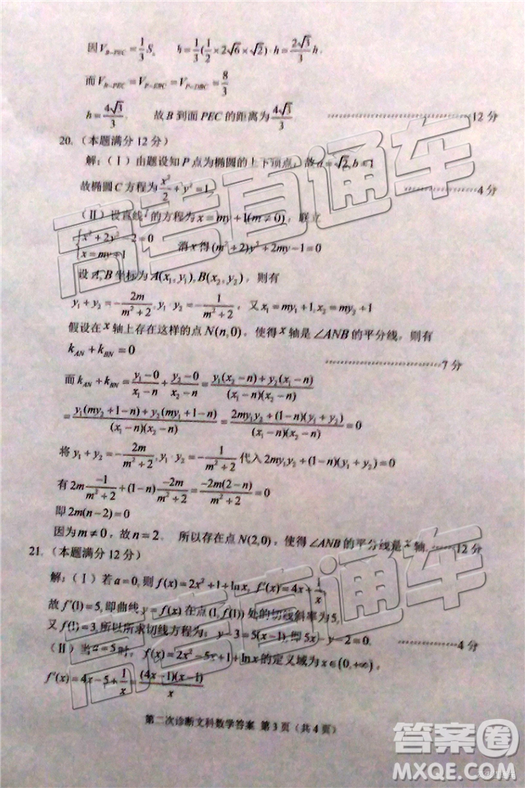 因V_{B-PEC}=\frac{1}{3}S_{} h=\frac{1}{3}(\frac{1}{2}×2√6×√2)·h=\frac{2√3}{3}h.
而V_{B-PEC}=V_{P-EBC}=V_{P-DBC}=\frac{8}{3}
h=\frac{4√3}{3}. 故B到面PEC的距离为\frac{4√3}{3} ………………12分
20.（本题满分12分）
解：（Ⅰ）由题设知P点为椭圆的上下顶点，故a=√2,b=1
故椭圆C方程为\frac{x²}{2}+y²=1. ………………4分
（Ⅱ）设直线l的方程为x=my+1(m≠0)，联立
{x²+2y²-2=0
x=my+1 消x得(m²+2)y²+2my-1=0
设A,B坐标为A(x₁,y₁),B(x₂,y₂)，则有
y₁+y₂=-\frac{2m}{m²+2},y₁y₂=-\frac{1}{m²+2}，又x₁=my₁+1,x₂=my₂+1
假设在x轴上存在这样的点N(n,0)，使得x轴是∠ANB的平分线，则有
k_{AN}+k_{BN}=0 ………………7分
而k_{AN}+k_{BN}=\frac{y₁-0}{x₁-n}+\frac{y₂-0}{x₂-n}=\frac{y₁(x₂-n)+y₂(x₁-n)}{(x₁-n)(x₂-n)}
=\frac{y₁(my₂+1-n)+y₂(my₁+1-n)}{(x₁-n)(x₂-n)}=\frac{2my₁y₂+(1-n)(y₁+y₂)}{(x₁-n)(x₂-n)}
将y₁+y₂=-\frac{2m}{m²+2},y₁y₂=-\frac{1}{m²+2}代入2my₁y₂+(1-n)(y₁+y₂)
有2m\frac{-1}{m²+2}+(1-n)\frac{-2m}{m²+2}=\frac{-2m(2-n)}{m²+2}=0
即2m(n-2)=0
因为m≠0，故n=2. 所以存在点N(2,0)，使得∠ANB的平分线是x轴. ……12分
21.（本题满分12分）
解：（Ⅰ）若a=0,则f(x)=2x²+1+lnx, f'(x)=4x+\frac{1}{x}
故f'(1)=5,即曲线y=f(x)在点(1,f(1))处的切线斜率为5,
又f(1)=3,所以所求切线方程为：y-3=5(x-1),即5x-y-2=0. ………………4分
（Ⅱ）当a=-5时,f(x)=2x²-5x+1+lnx的定义域为(0,+∞),
f'(x)=4x-5+\frac{1}{x}=\frac{(4x-1)(x-1)}{x}
第二次诊断文科数学答案 第3页（共4页）
高考直通车
高考直通车
答案圈
MXQE.COM